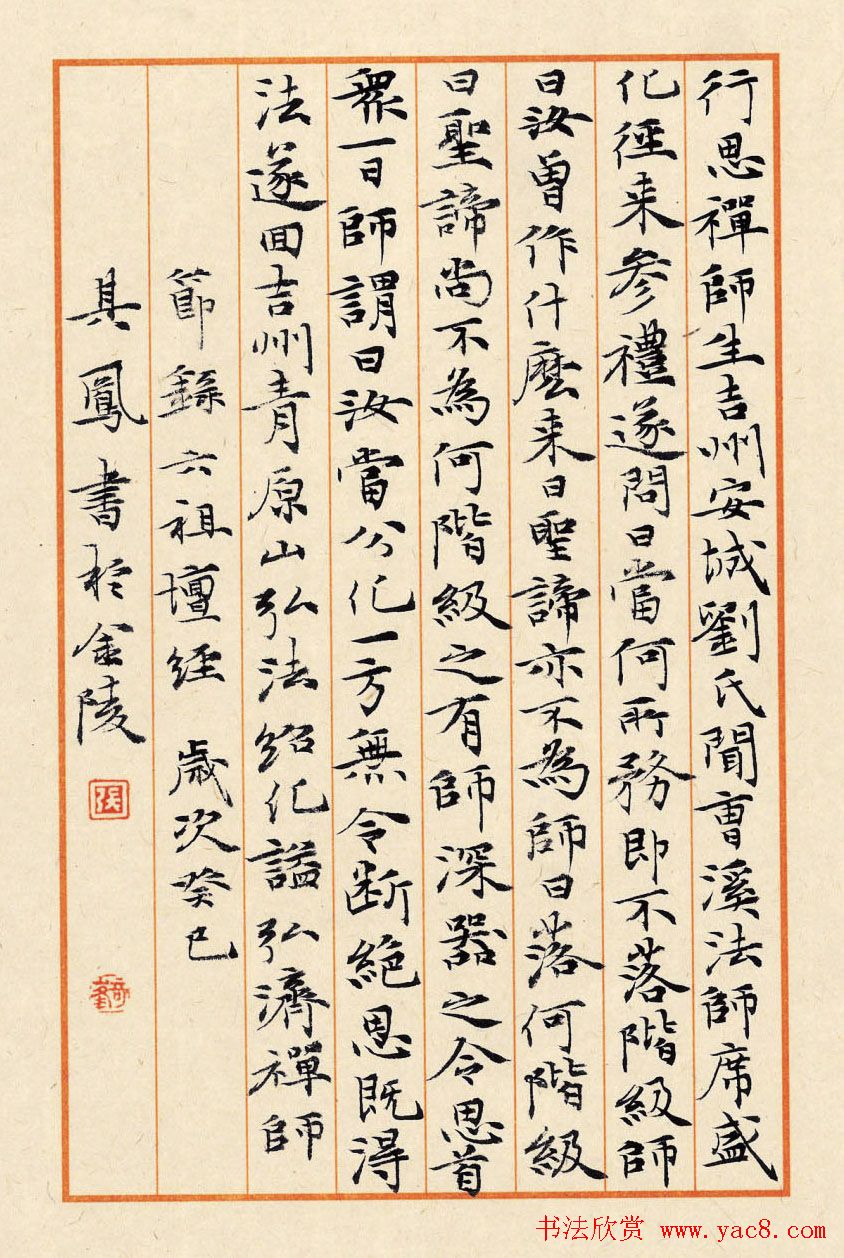 行思禪師生吉州安城劉氏聞曹溪法師席盛
化徑来參禮遂問曰當何所務即不落階級師
曰汝曾作什麼来曰聖諦亦不為師曰落何階級
曰聖諦尚不為何階級之有師深器之令思首
眾一日師謂曰汝當分化一方無令断絕思既得
法遂回吉州青原山弘法紹化諡弘濟禪師
節錄六祖壇經 歲次癸巳
其鳳書於金陵
張
书法欣赏 www.yac8.com